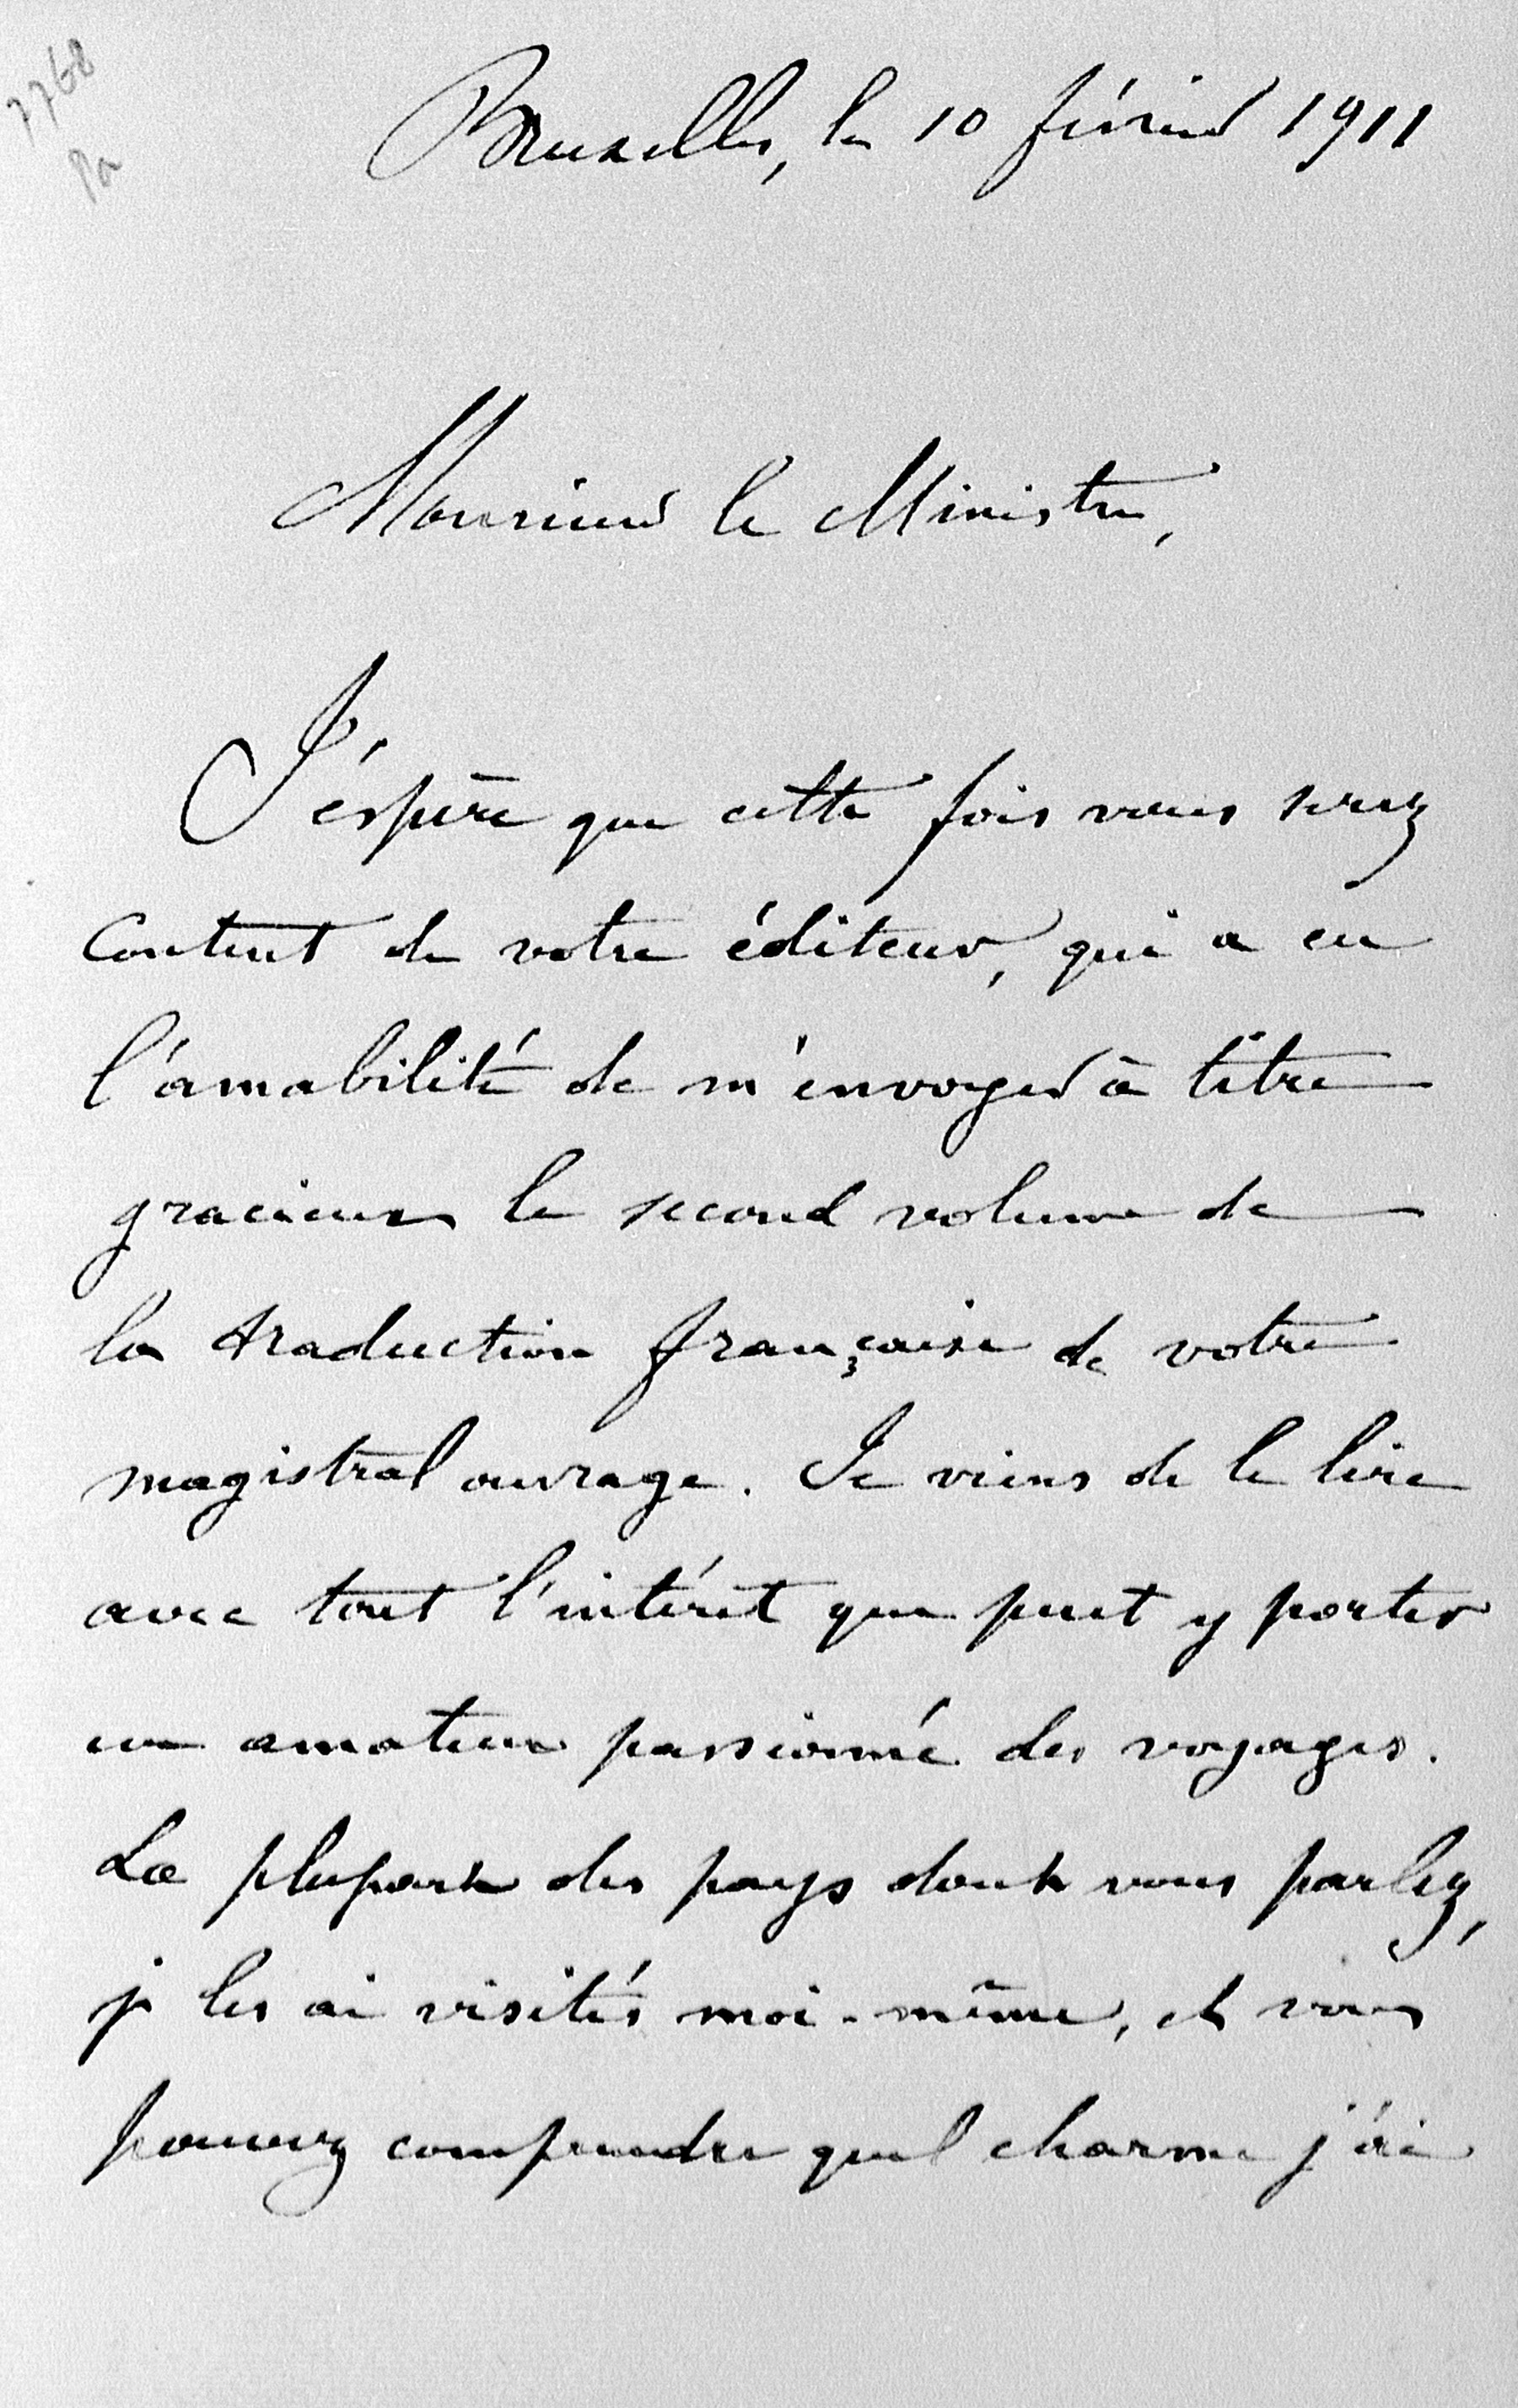 7768
Pa
Bruxelles, le 10 février 1911
Monsieur le Ministre,
J'éspère que cette fois vous serez
content de votre éditeur, qui a eu
l'amabilité de m'envoyer à titre
gracieux le second volume de
la traduction française de votre
magistral ouvrage. Je viens de le lire
avec tout l'intérêt que peut y porter
un amateur passionné des voyages.
La plupart des pays dont vous parlez,
je les ai visités moi-même, et vous
pouvez comprendre quel charme j'ai